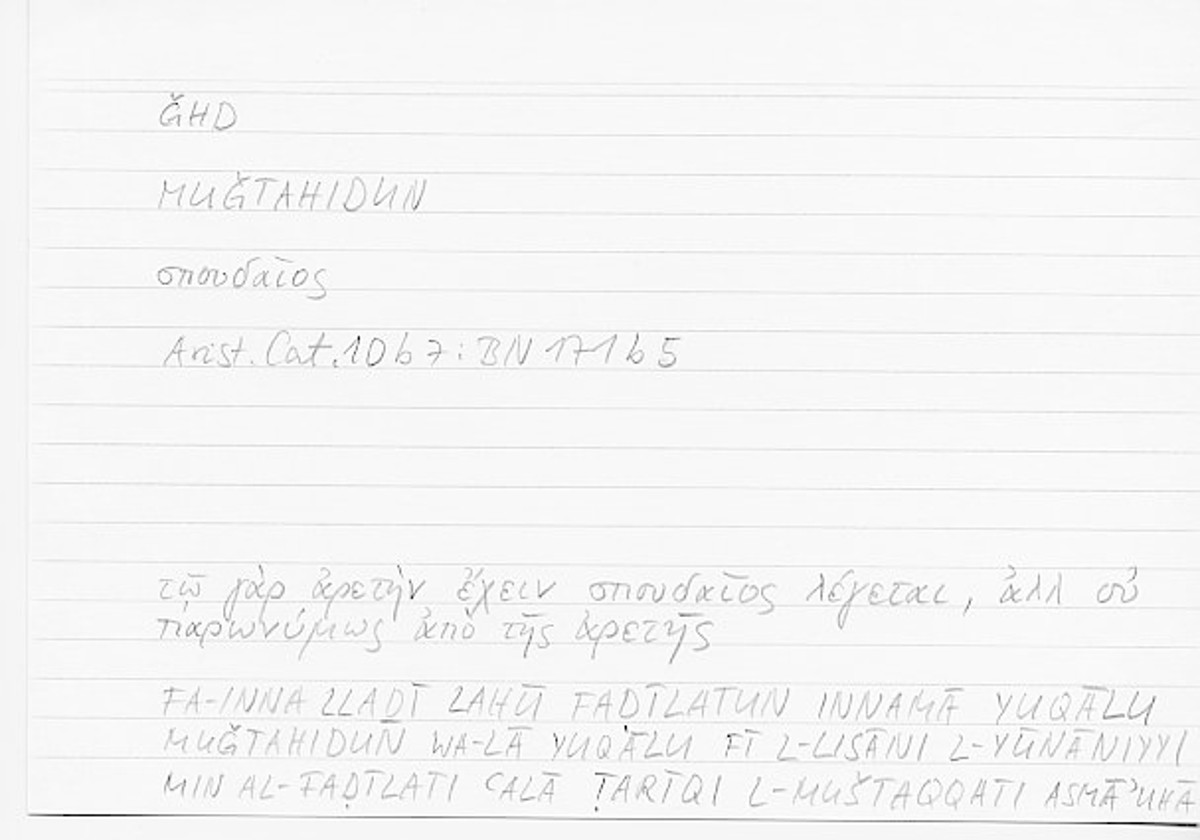 ǦHD
MUǦTAHIDUN
σπουδαῖος
Arist. Cat. 10 b 7 : BN 171 b 5
τῷ γὰρ ἀρετὴν ἔχειν σπουδαῖος λέγεται, ἀλλ οὐ
παρωνύμως ἀπὸ τῆς ἀρετῆς
FA-INNA LLAḎĪ LAHŪ FAḌĪLATUN INNAMĀ YUQĀLU
MUǦTAHIDUN WA-LĀ YUQĀLU FĪ L-LISĀNI L-YŪNĀNIYYI
MIN AL-FAḌĪLATI ʿALĀ ṬARĪQI L-MUŠTAQQATI ASMĀʾUHĀ